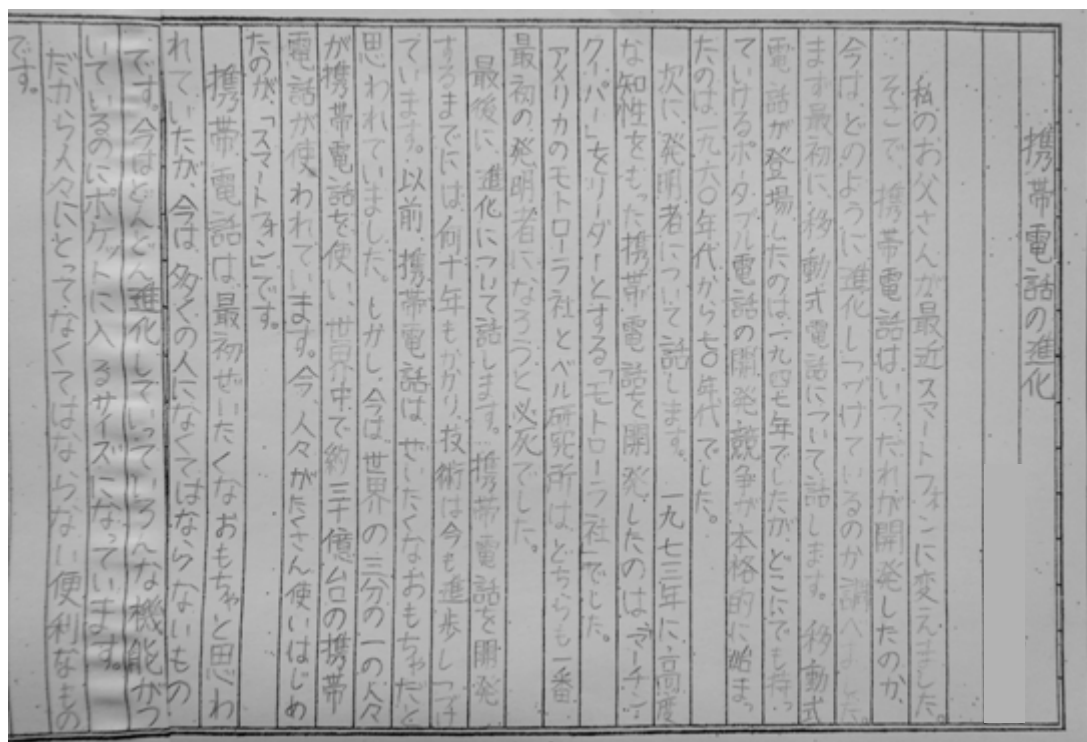 携帯電話の進化
私のお父さんが最近スマートフォンに変えました。
そこで、携帯電話はいつ、だれが開発したのか、
今は、どのように進化しつづけているのか調べました。
まず最初に、移動式電話について話します。移動式
電話が登場したのは一九四七年でしたが、どこにでも持っ
ていけるポータブル電話の開発競争が本格的に始まっ
たのは一九六〇年代から七〇年代でした。
次に、発明者について話します。一九七三年に、高度
な知性をもった携帯電話を開発したのは「マーチン・
クーパー」をリーダーとする「モトローラ社」でした。
アメリカのモトローラ社とベル研究所は、どちらも一番
最初の発明者になろうと必死でした。
最後に、進化について話します。携帯電話を開発
するまでには、何十年もかかり、技術は今も進歩しつづけ
ています。以前、携帯電話は、ぜいたくなおもちゃだと
思われていました。しかし、今は、世界の三分の一の人々
が携帯電話を使い、世界中で約三十億台の携帯
電話が使われています。今、人々がたくさん使いはじめ
たのが、「スマートフォン」です。
携帯電話は、最初ぜいたくなおもちゃと思わ
れていたが、今は多くの人になくてはならないもの
です。今はどんどん進化していっていろんな機能がつ
いているのにポケットに入るサイズになっています。
だから人々にとってなくてはならない便利なもの
です。